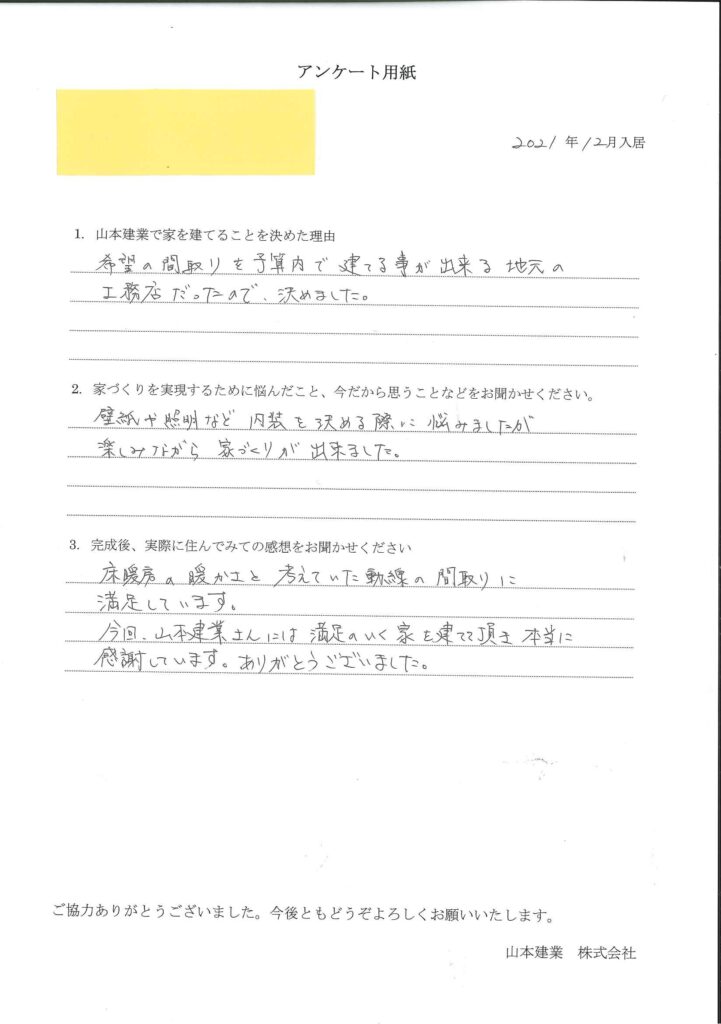 アンケート用紙
2021年12月入居
1. 山本建業で家を建てることを決めた理由
希望の間取りを予算内で建てる事が出来る地元の
工務店だったので、決めました。
2. 家づくりを実現するために悩んだこと、今だから思うことなどをお聞かせください。
壁紙や照明など内装を決める際に悩みましたが
楽しみながら家づくりが出来ました。
3. 完成後、実際に住んでみての感想をお聞かせください
床暖房の暖かさと考えていた動線の間取りに
満足しています。
今回、山本建業さんには満足のいく家を建てて頂き本当に
感謝しています。ありがとうございました。
ご協力ありがとうございました。今後ともどうぞよろしくお願いいたします。
山本建業 株式会社